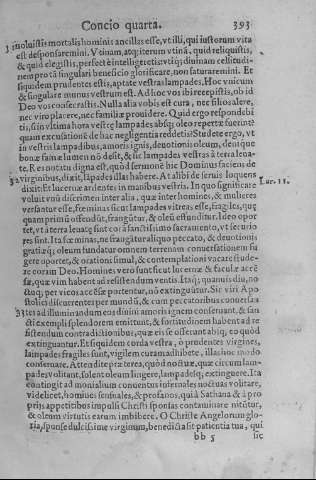 Concio quarta. 393
noluistis mortalis hominis ancillas esse, vt illi, qui iustorum vita
est desponsaremini. Vtinam, atq; iterum vtinā, quid reliquistis,
& quid elegistis, perfectè intelligeretis: vtiq; diuinam celsitudi-
nem pro tā singulari beneficio glorificare, non saturaremini. Et
siquidem prudentes estis, aptate vestras lampades. Hoc vnicum
& singulare munus vestrum est. Ad hoc vos ibi recepistis, ob id
Deo vos consecrastis. Nulla alia vobis est cura, nec filios alere,
nec viro placere, nec familiæ prouidere. Quid ergo respondebi
tis, si in vltima hora vestrę lampades absq; oleo repertæ fuerint?
quam excusationē de hac negligentia reddetis? Studete ergo, vt
in vestris lampadibus, amoris ignis, deuotionis oleum, deníque
bonæ famæ lumen nō desit, & sic lampades vestras à terra leua-
te. Est notatu digna est, quòd sermonē hic Dominus faciens de
virginibus, dixit, lāpades illas habere. At alibi de seruis loquens
dixit: Et lucernæ ardentes in manibus vestris. In quo significare
voluit vnū discrimen inter alia, quæ inter homines, & mulieres
versantur esse, fœminas sicut lampades vitreas esse, fragiles, quę
quam primū offendūt, frangūtur, & oleū effunditur. Ideo opor
tet, vt à terra leuatę sint corā sanctissimo sacramento, vt securio
res sint. Ita fœminas, ne frangātur aliquo peccato, & deuotionis
gratiæq; oleum fundatur omnem terrenam conuersationem fu
gere oportet, & orationi simul, & contemplationi vacare stude-
re coram Deo. Homines verò sunt sicut lucernæ & faculæ accē
sæ, quæ vim habent ad resistendum ventis. Itaq; quamuis diu, no
ctuq; per vicos accēsæ portentur, nō extinguūtur. Sic viri Apo
stolici discurrentes per mundū, & cum peccatoribus conuersa
tes ad illuminandum eos diuini amoris ignem conseruant, & san
cti exempli splendorem emittunt, & fortitudinem habent ad re
sistendum contradictionibus, quæ eis se offerunt abiq, eo quòd
extinguantur. Et siquidem corda vestra, ô prudentes virgines,
lampades fragiles sunt, vigilem curam adhibete, illas hoc modo
conseruare. Attendite præterea, quòd noctuæ, quæ circum lam-
pades volitant, solent oleum lingere, lampadesq; extinguere. Ita
contingit ad monialium conuentus infernales noctuas volitare,
videlicet, homines sensuales, & profanos, qui à Sathana & à pro
prijs appetitibus impulsi Christi sponsas contaminare nitūtur,
& oleum virtutis earum imbibere. O Christe Angelorum glo-
ria, sponse dulcissime virginum, benedicta sit patientia tua, qui
bb 5 sic
Luc. 12.